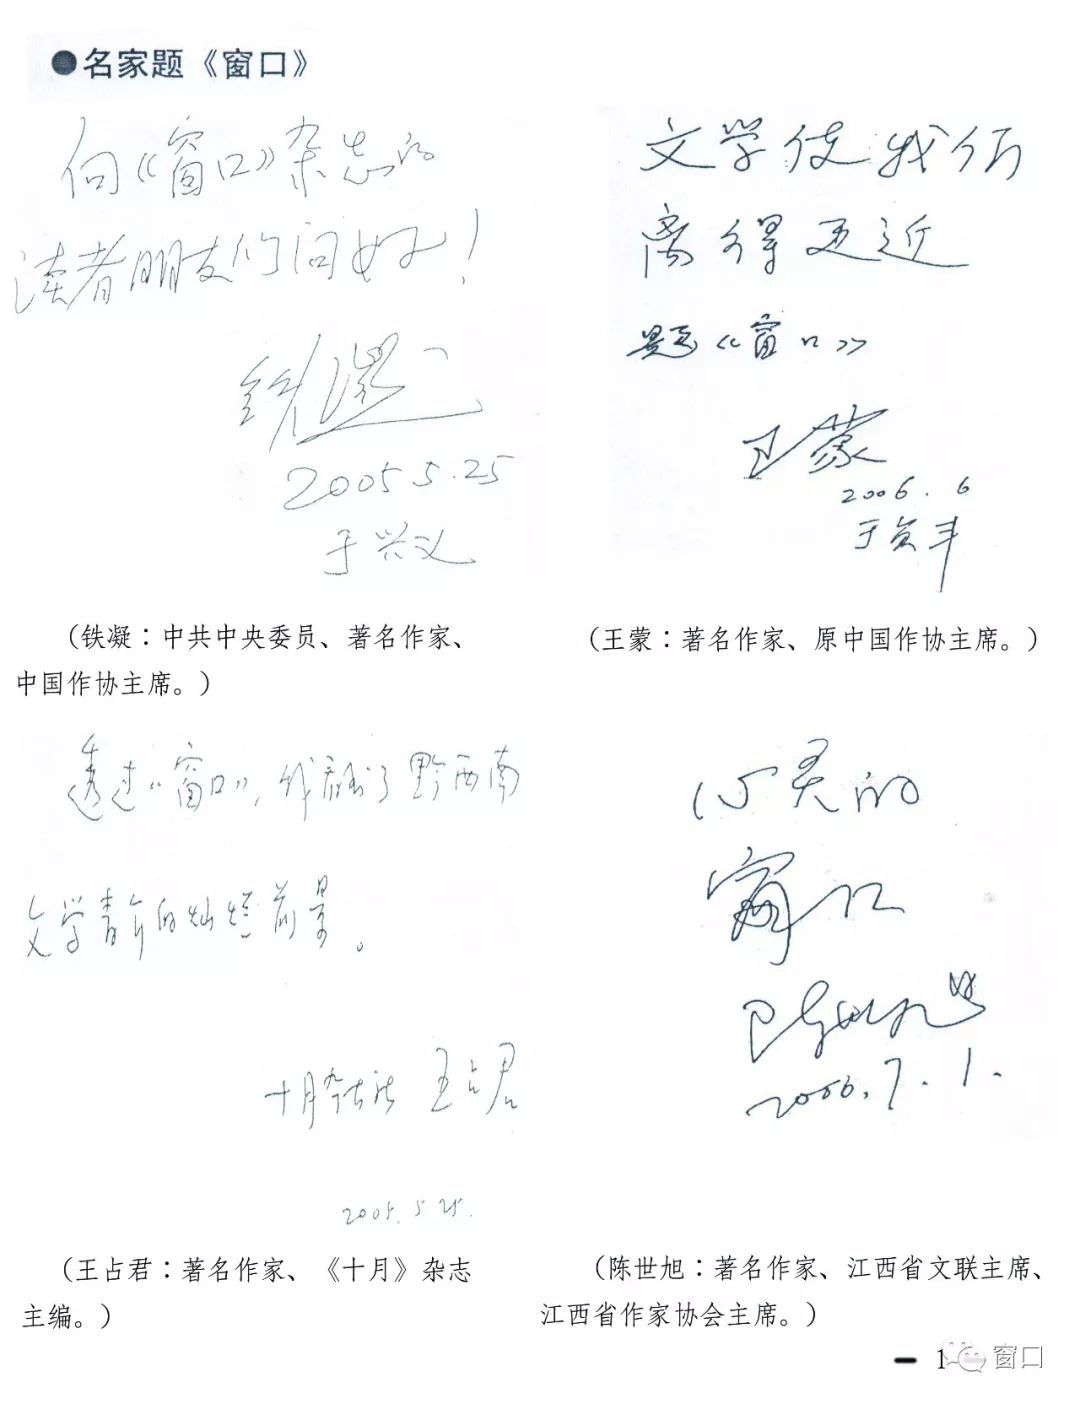 ●名家题《窗口》
向《窗口》杂志的
读者朋友们问好！
铁凝
2005.5.25
于兴义
（铁凝：中共中央委员、著名作家、
中国作协主席。）
文学使我们
离得更近
题《窗口》
王蒙
2006.6
于贞丰
（王蒙：著名作家、原中国作协主席。）
透过《窗口》，我看到了黔西南
文学青年的灿烂前景。
十月杂志社 王占君
2005.5.25.
（王占君：著名作家、《十月》杂志
主编。）
心灵的
窗口
陈世旭
2006.7.1.
（陈世旭：著名作家、江西省文联主席、
江西省作家协会主席。）
1
窗口